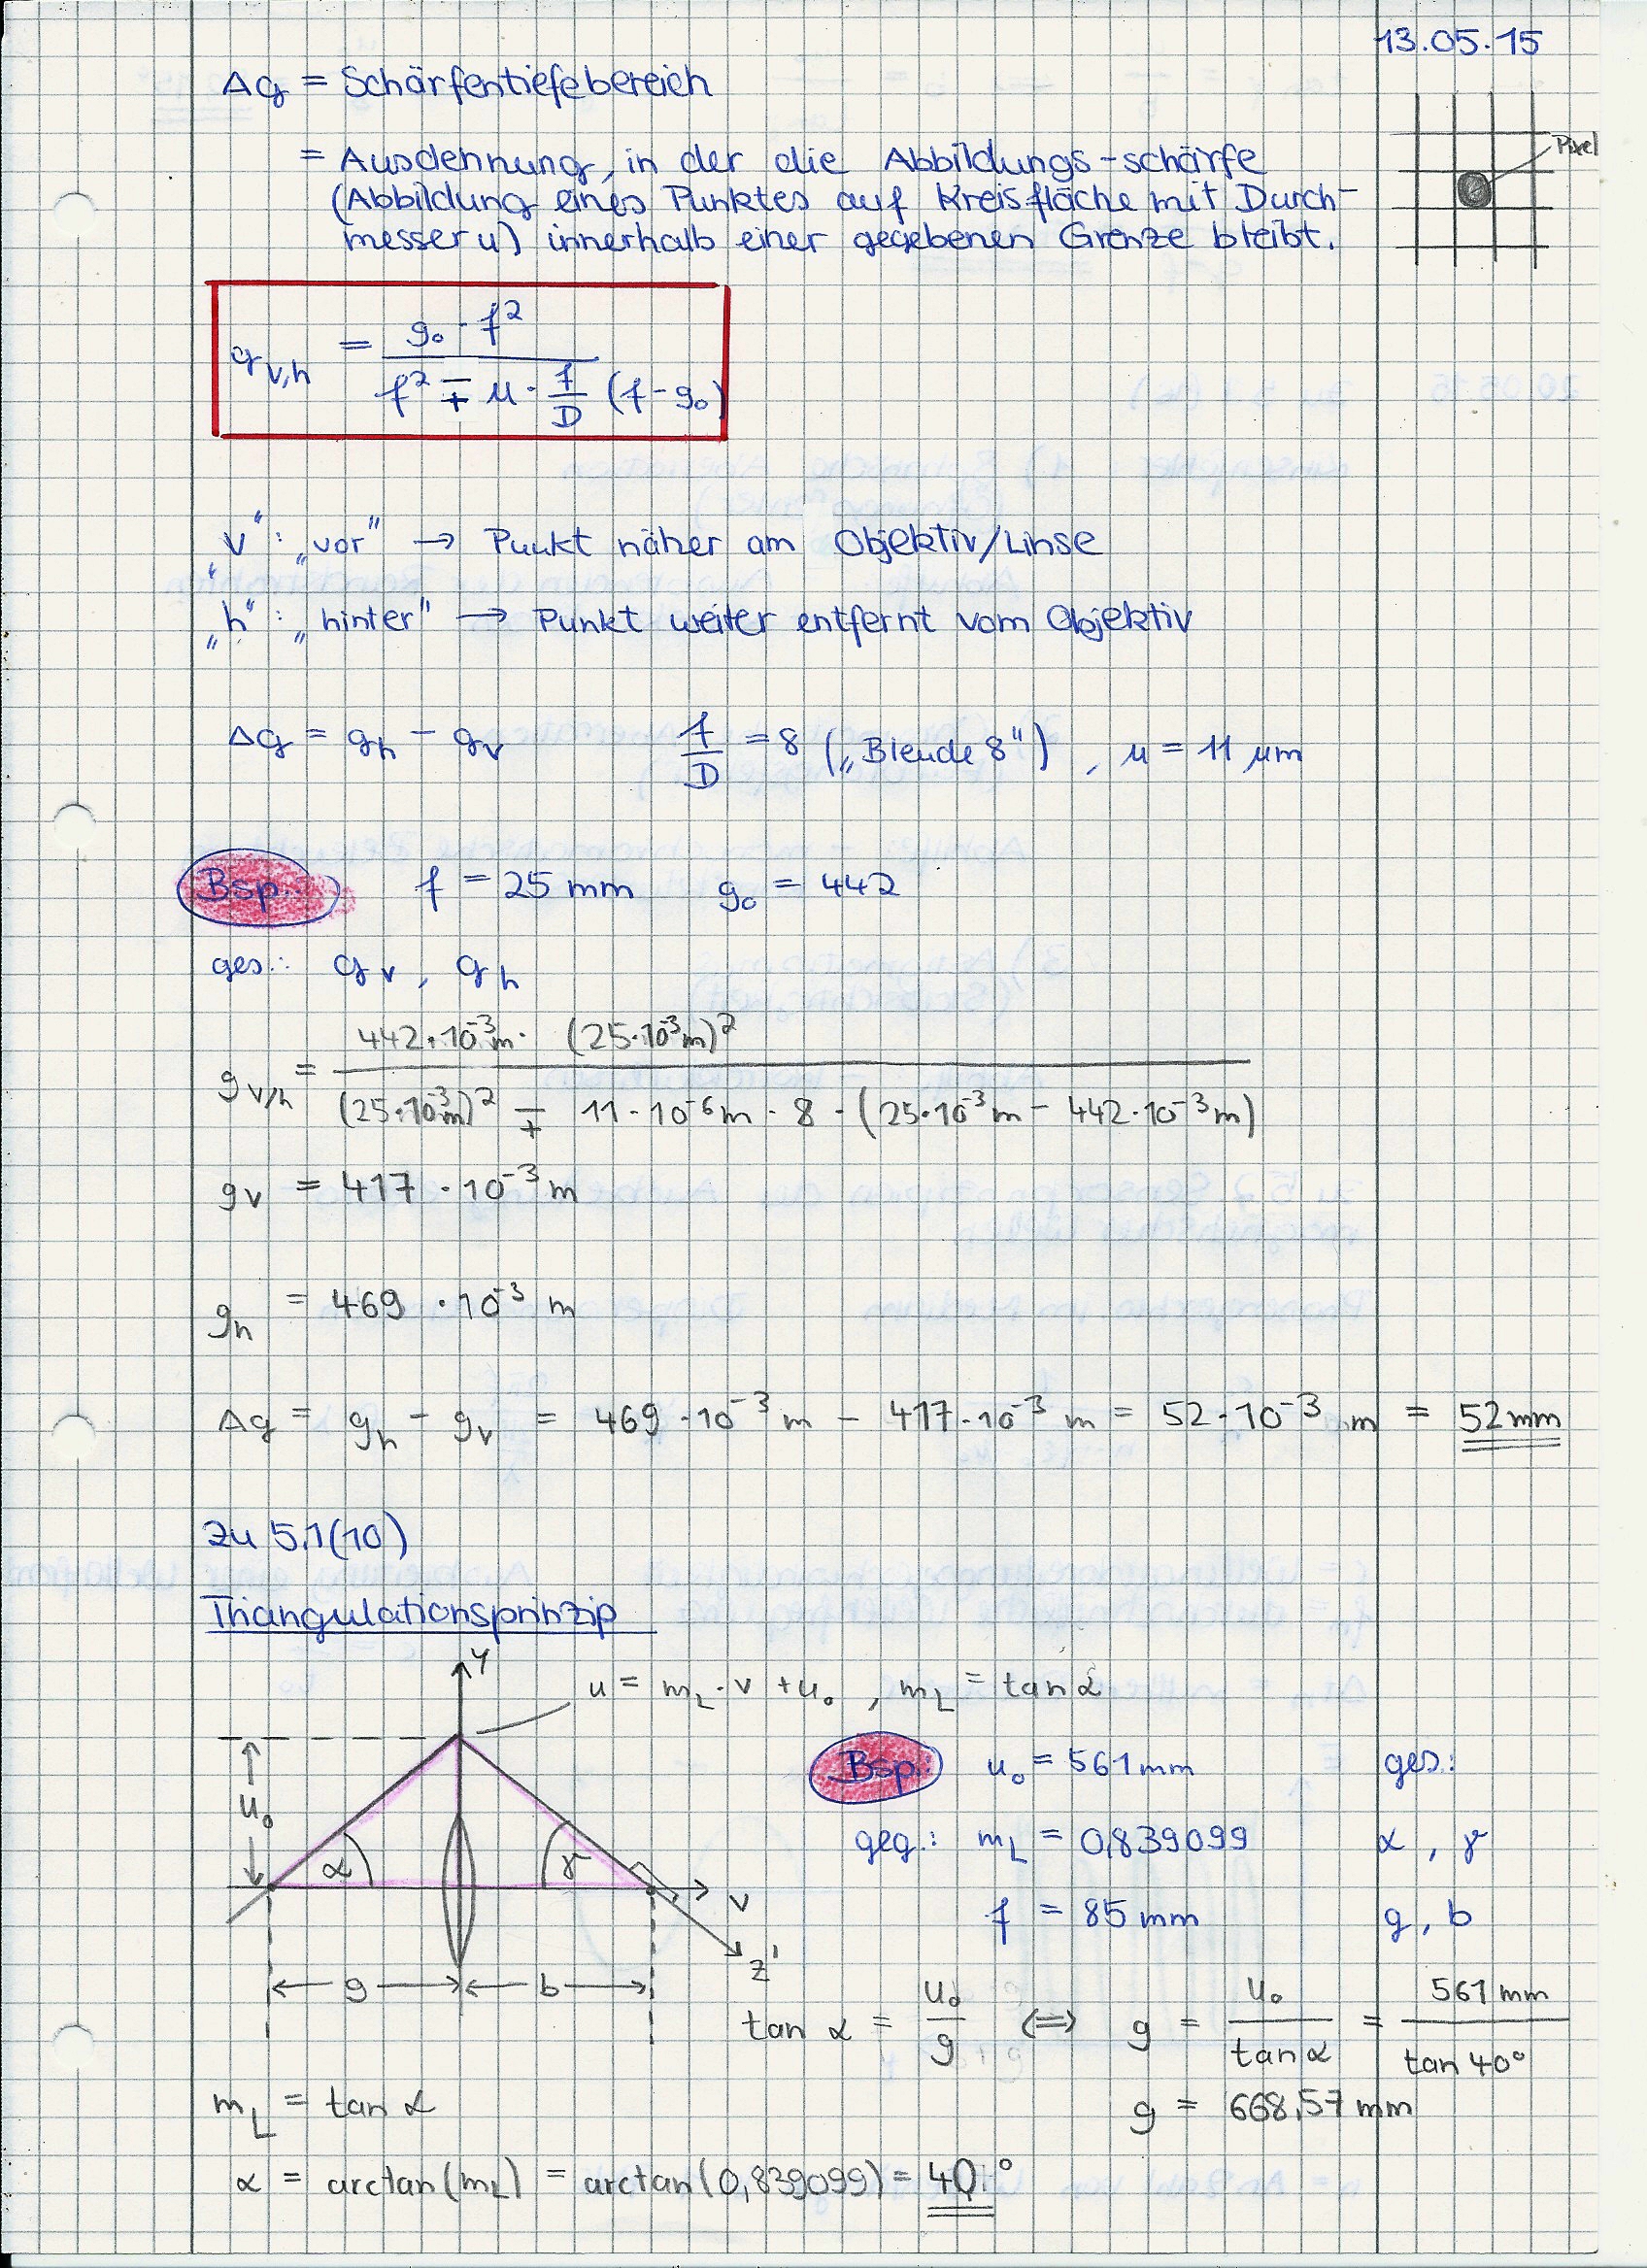 13.05.15
Δg = Schärfentiefebereich
= Ausdehnung, in der die Abbildungs-schärfe
(Abbildung eines Punktes auf Kreisfläche mit Durch-
messer u) innerhalb einer gegebenen Grenze bleibt.
Pixel
g v,h = g₀ · f² / (f² ∓ u · f/D (f - g₀))
„v“ : „vor“ → Punkt näher am Objektiv/Linse
„h“ : „hinter“ → Punkt weiter entfernt vom Objektiv
Δg = gh - gv   f/D = 8 („Blende 8“) , u = 11 µm
Bsp.: f = 25 mm   g₀ = 442
ges.: gv , gh
gv/h = 442·10⁻³m · (25·10⁻³m)² / ((25·10⁻³m)² ∓ 11·10⁻⁶m · 8 · (25·10⁻³m - 442·10⁻³m))
gv = 417 · 10⁻³ m
gh = 469 · 10⁻³ m
Δg = gh - gv = 469 · 10⁻³ m - 417·10⁻³ m = 52·10⁻³ m = 52 mm
zu 5.1(10)
Triangulationsprinzip
y
u = mL · v + u₀ , mL = tan α
Bsp.: u₀ = 561 mm   ges.:
u₀
geg.: mL = 0,839099   α , γ
α   γ
v
f = 85 mm   g , b
z'
g   b
tan α = u₀/g ⟺ g = u₀/tan α = 561 mm/tan 40°
mL = tan α
g = 668,57 mm
α = arctan(mL) = arctan(0,839099) = 40°